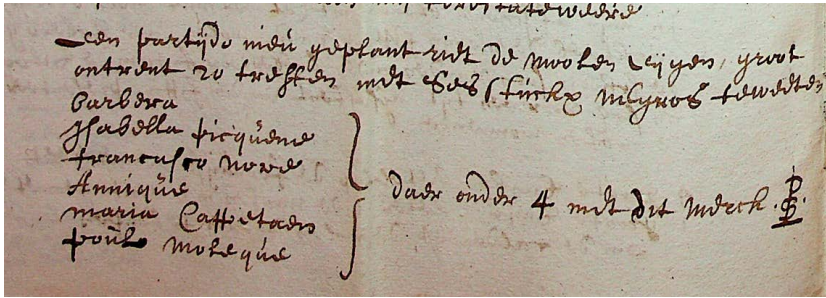 Een partijdo nieu geplant riet de moolen Eijgen, groot
ontrent 20 treffen met Ses stuckx negros teweeten
barbera
Isabella picquene
francasco nove
Annique
maria Cappetaen
poul moleque
daer onder 4 met dit merck.